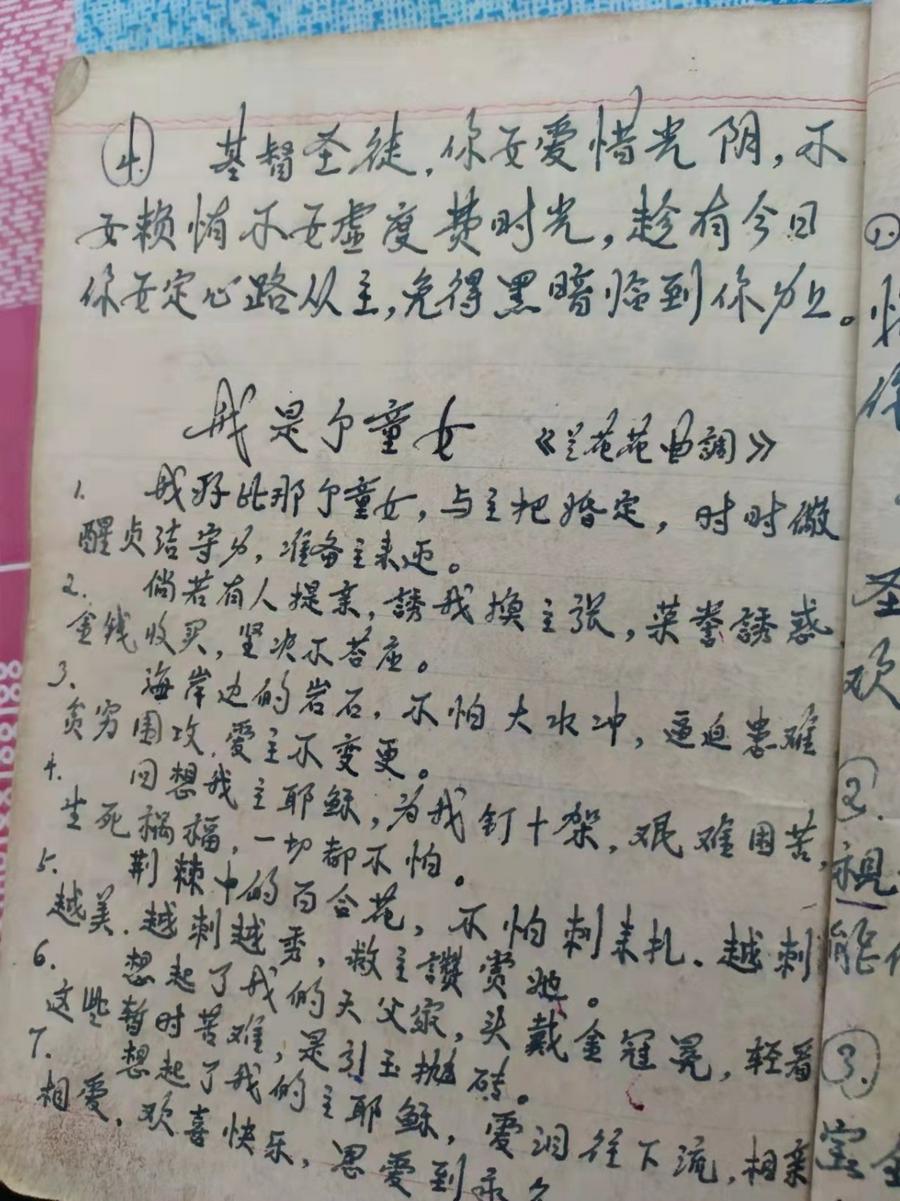 4. 基督圣徒,你要爱惜光阴,不
要赖惰不要虚度费时光,趁有今日
你要定心路从主,免得黑暗临到你身上。
我是个童女 《兰花花曲調》
1. 我好比那个童女,与主把婚定,时时儆
醒贞洁守身,准备主来迎。
2. 倘若有人提亲,誘我換主张,荣誉誘惑
金钱收买,坚决不答应。
3. 海岸边的岩石,不怕大水冲,逼迫患难
贫穷围攻,爱主不变更。
4. 回想我主耶稣,为我钉十架,艰难困苦,
生死祸福,一切都不怕。
5. 荆棘中的百合花,不怕刺来扎、越刺
越美.越刺越秀,救主讚赏她。
6. 想起了我的天父家,头戴金冠冕,轻看
这些暂时苦难,是引玉抛砖。
7. 想起了我的主耶稣,爱泪往下流,相亲
相爱,欢喜快乐,恩爱到永久
①
圣
欢
②.
能
③.
宝